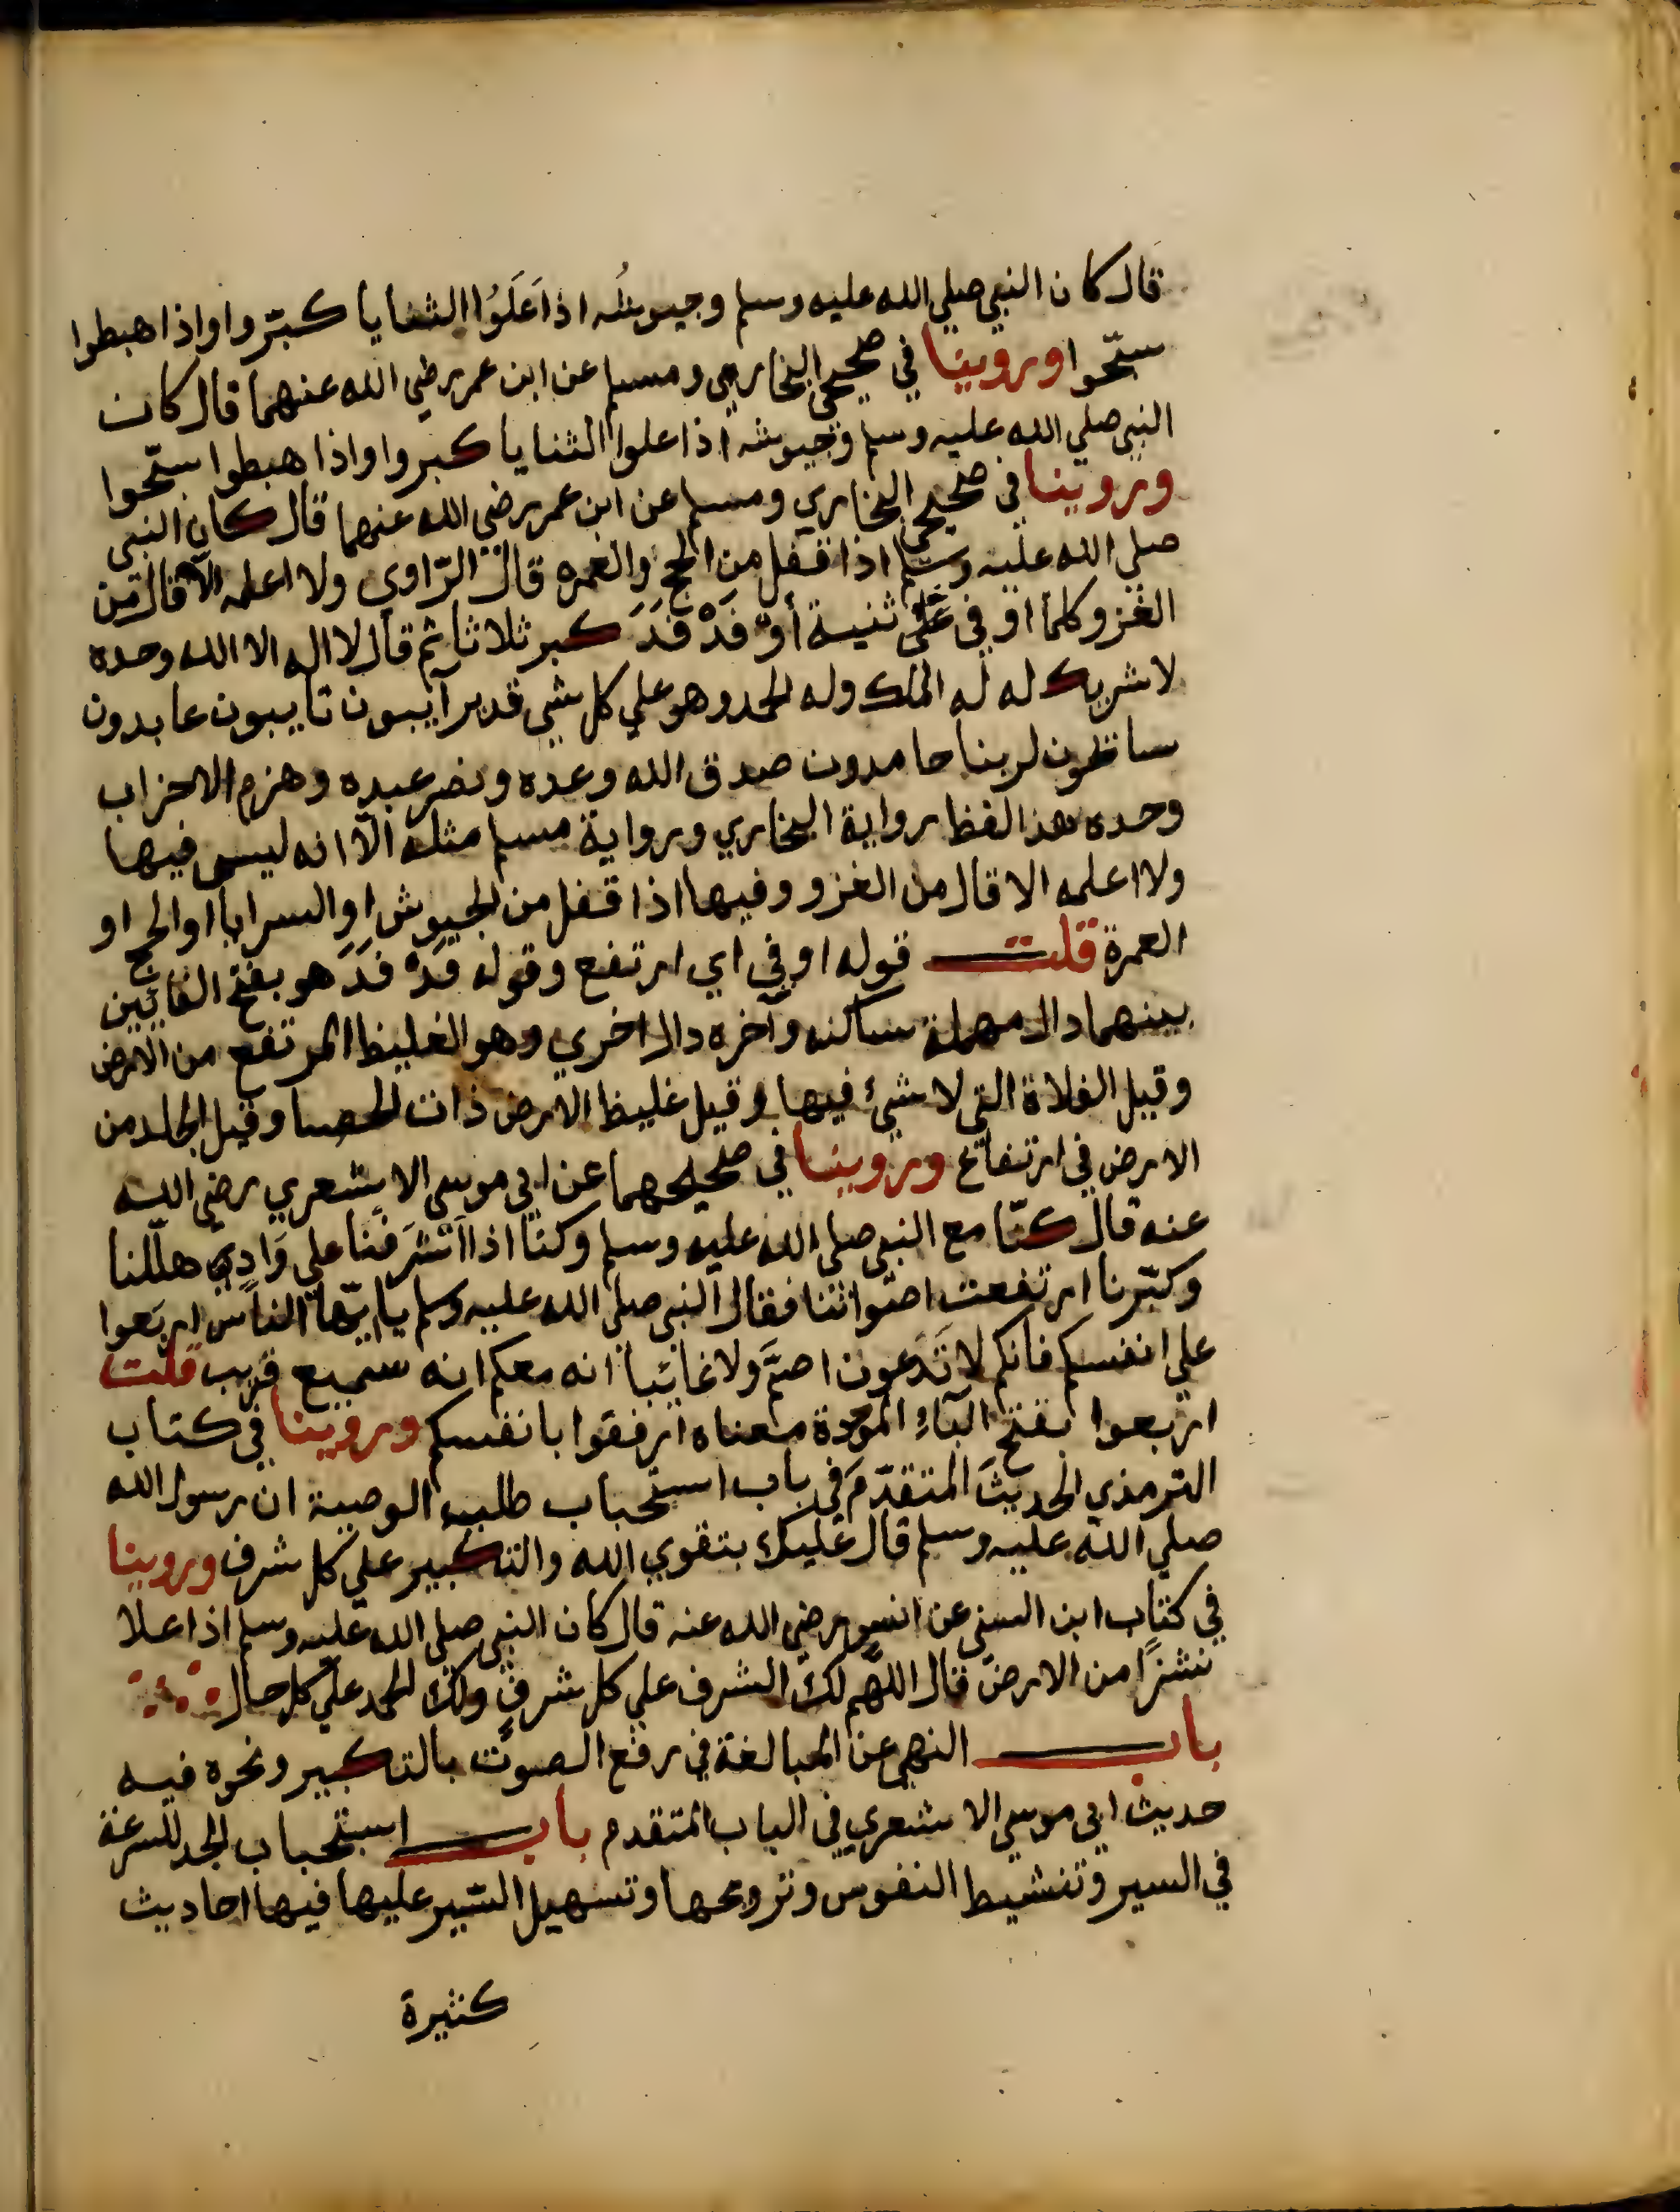 قال كان النبي صلي الله عليه وسلم وجيوشُه اذا عَلَوُا الثنايا كبّروا واذا هبطوا
سبّحوا وروينا في صحيحي البخاري ومسلم عن ابن عمر رضي الله عنهما قال كان
النبي صلي الله عليه وسلم وجيوشه اذا علوا الثنايا كبروا واذا هبطوا سبّحوا
وروينا في صحيحي البخاري ومسلم عن ابن عمر رضي الله عنهما قال كان النبي
صلي الله عليه وسلم اذا قفل من الحج والعمره قال الرّاوي ولا اعلمه الّا قال من
الغزو كلما اوفي علي ثنية أوْ فَدْ فَدَ كبر ثلاثا ثم قال لا اله الا الله وحده
لا شريك له له الملك وله الحمد وهو علي كل شي قدير آيبون تايبون عابدون
سائحون لربنا حامدون صدق الله وعده ونصر عبده وهزم الاحزاب
وحده هذا لفظ رواية البخاري ورواية مسلم مثله الّا انه ليس فيها
ولا اعلمه الا قال من الغزو وفيها اذا قفل من الجيوش او السرايا او الحج او
العمرة قلت قوله اوفي اي ارتفع وقوله فَدْ فَدَ هو بفتح الفائين
بينهما دال مهملة ساكنه وآخره دال اخري وهو الغليظ المرتفع من الارض
وقيل الفلاة التي لا شئ فيها وقيل غليظ الارض ذات الحصا وقيل الجلد من
الارض في ارتفاع وروينا في صحيحهما عن ابي موسي الاشعري رضي الله
عنه قال كنّا مع النبي صلي الله عليه وسلم وكنّا اذا اَشرَفنا علي وَادٍي هلّلنا
وكبّرنا ارتفعت اصواتنا فقال النبي صلي الله عليه وسلم يا ايّها الناس اربَعوا
علي انفسكم فانكم لا تَدعون اصمَّ ولا غائبا انه معكم انه سميع قريب قلت
اربعوا بفتح الباءِ الموحدة معناه ارفقوا بانفسكم وروينا في كتاب
الترمذي الحديثَ المتقدّمَ في باب استحباب طلبه الوصية ان رسول الله
صلي الله عليه وسلم قال عليك بتقوي الله والتكبير علي كل شرف وروينا
في كتاب ابن السني عن انس رضي الله عنه قال كان النبي صلي الله عليه وسلم اذا علا
نشزًا من الارض قال اللهم لك الشرف علي كل شرفٍ ولك الحمد علي كل حال
باب النهي عن المبالغة في رفع الصوت بالتكبير ونحوه فيه
حديث ابي موسي الاشعري في الباب المتقدم باب استحباب الحد للسرعة
في السير وتنشيط النفوس وترويحها وتسهيل السّير عليها فيها احاديث
كثيرة